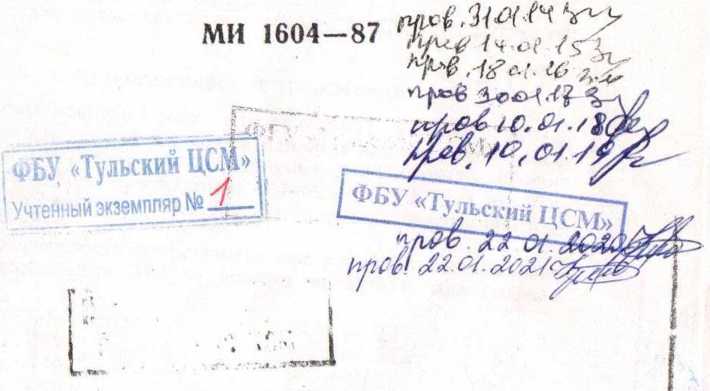 МИ 1604—87
пров. 31.01.14
пров 14.01.15
пров. 18 01.16
пров 30.01.17
пров 10.01.18
пров. 10.01.19
ФГУ
ФБУ «Тульский ЦСМ»
Учтенный экземпляр № 1
ФБУ «Тульский ЦСМ»
пров. 22 01. 2020
пров. 22.01.2021